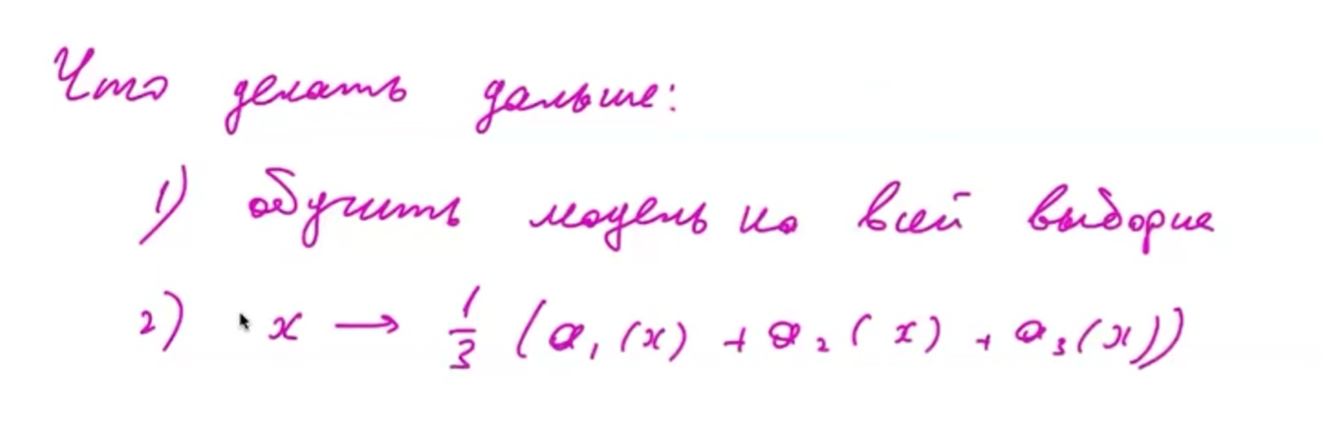 Что делать дальше:
1) обучить модель на всей выборке
2) x → 1/3 (a₁(x) + a₂(x) + a₃(x))